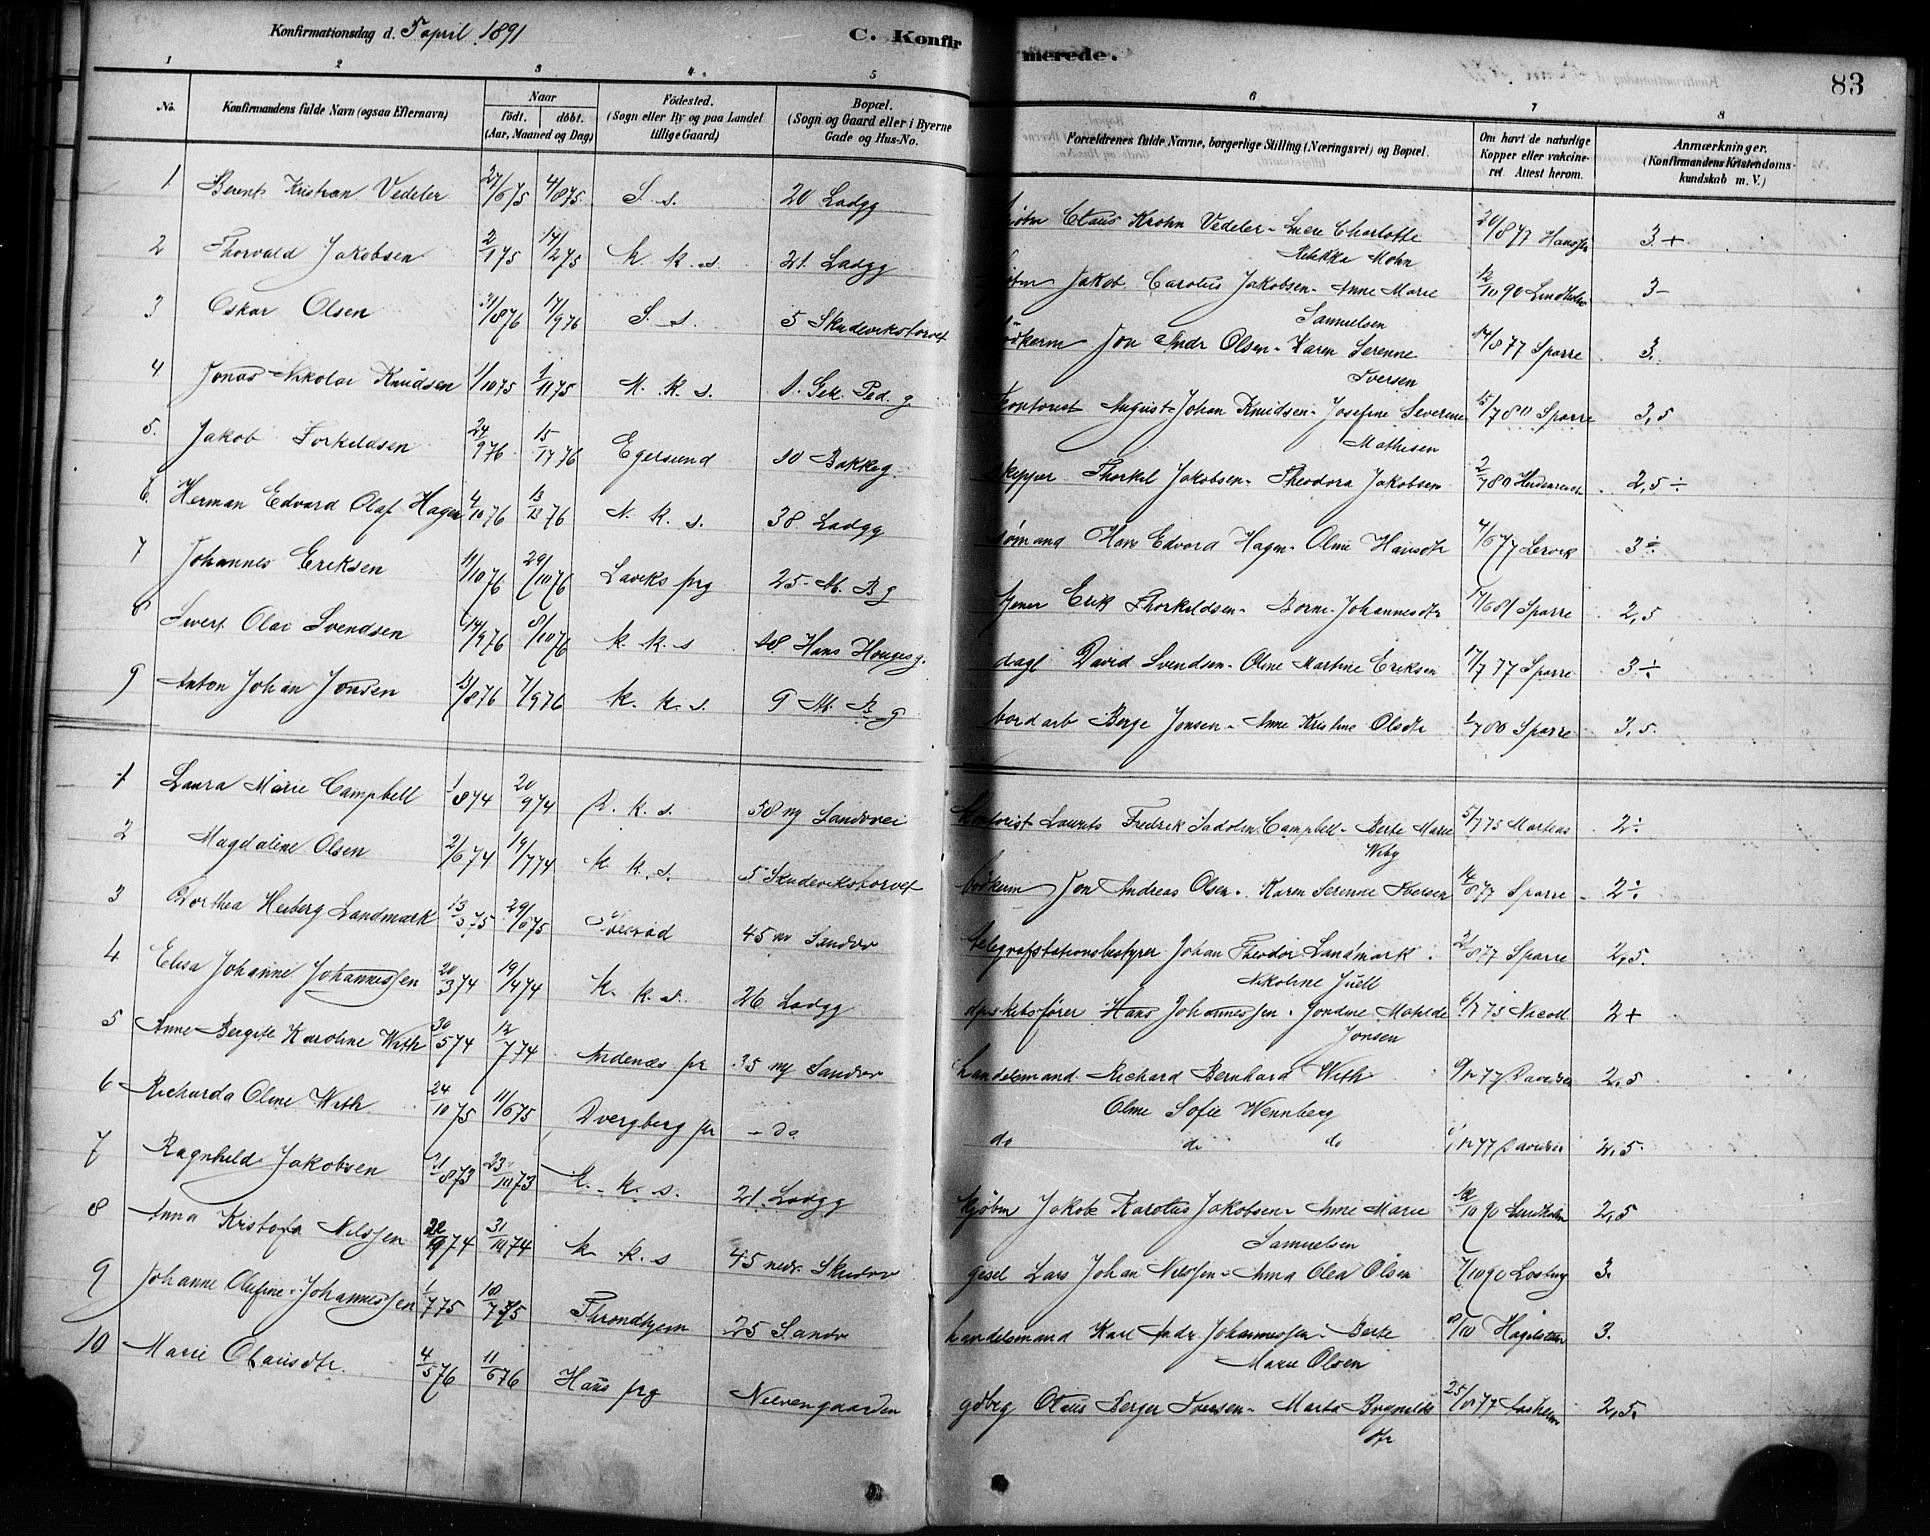 Konfirmationsdag d. 5 april 1891
C. Konfirmerede.
83
1 2 3 4 5 6 7 8
No.
Konfirmandens fulde Navn (ogsaa Efternavn)
Naar
födt. döbt.
(Aar, Maaned og Dag)
Födested.
(Sogn eller By og paa Landet
tillige Gaard)
Bopæl.
(Sogn og Gaard eller i Byerne
Gade og Hus-No.
Forældrenes fulde Navne, borgerlige Stilling (Næringsvei) og Bopæl.
Om havt de naturlige
Kopper eller vakcine-
ret. Attest herom.
Anmærkninger.
(Konfirmandens Kristendoms-
kundskab m. V.)
1 Berent Kristian Vedeler 27/6 75 4/8 75 S. s. 20 Ladgg Claus Krohn Vedeler - Charlotte 20/8 77 3+
Rebekka Mohn
2 Thorvald Jakobsen 2/1 75 14/2 75 k. k. s. 21 Ladgg Jakob Carolus Jakobsen - Anne Marie 12/10 90 Lindholm 3-
Samuelsen
3 Oskar Olsen 31/8 76 17/9 76 S. s. 5 Skudevikstorvet Jon Andr Olsen - Karen Serenne 14/8 77 Sparre 3.
Iversen
4 Jonas Nikolai Knudsen 1/10 75 1/11 75 N. K. s. 1. Gek. Ped. g. kontorist August Johan Knudsen - Josefine Severine Sparre 3,5
Mathisen
5. Jakob Torkildsen 24/9 76 76 Egersund 10 Bakkeg. skipper Thorkel Jakobsen - Theodora Jakobsen 2/7 80 2,5 ÷
6. Herman Edvard Olaf Hagen 4/10 76 76 N. K. s. 38 Ladgg sömand Hans Edvard Hagen - Oline Hansdtr 4/6 77 Lervik 3 ÷
7 Johannes Eriksen 11/10 76 29/10 76 Laviks prg 25 M. B g Erik Thorkeldsen - Johannesdtr Sparre 2,5
8 Sivert Olai Svendsen 14/9 76 8/10 76 k. k. s 18 Hans Houges g. dagl David Svendsen - Oline Martine Eriksen 17/7 77 Sparre 3 ÷
9 Anton Johan Jonsen 13/8 76 7/9 76 k. k. s. 9 M. B g bordarb Berge Jonsen - Anne Kristine Olsdtr Sparre 3,5.
1 Laura Marie Campbell 1/8 74 20/9 74 D. k. s. 58 ny Sandvei kontorist Laurits Fredrik Campbell - Berte Marie 5/7 75 Martens 2 ÷
Wiby
2 Magdaline Olsen 2/6 74 19/7 74 k. k. s. 5 Skudevikstorvet bödkerm Jon Andreas Olsen - Karen Serenne Iversen 14/8 77 Sparre 2 ÷
3 Dorthea Heiberg Landmark 13/3 75 29/6 75 45 ny Sandvv telegrafstationsbestyrer Johan Theodor Landmark 2/8 77 Sparre 2,5.
Nikoline Juell
4 Elisa Johanne Johannessen 20/3 74 19/4 74 K. k. s. 26 Ladgg dpskibsförer Hans Johannessen - Jondine Matilde 6/7 75 Nicoll 2+
Jonsen
5 Anne Bergite Karoline With 30/5 74 12/7 74 Andenæs pr 35 ny Sandvv handelsmand Richard Bernhard With 2,5
Oline Sofie Wennberg
6 Richarda Oline With 24/10 75 11/6 75 Dvergberg pr - do do do do 2,5.
7 Ragnhild Jakobsen 31/8 73 23/10 73 k. k. s. 21 Ladgg kjöbm Jakob Karolus Jakobsen - Anne Marie 12/10 90 Lindholm 2,5
Samuelsen
8 Anna Kristofa Nilssen 22/9 74 31/10 74 k. k. s 45 nedr. Skudvv gesel Lars Johan Nilssen - Anna Olea Olsen 7/10 90 3.
9 Johanne Olufine Johannessen 1/7 75 10/7 75 Throndhjem 25 Sandv handelsmand Karl Andr Johannessen - Berte 3.
Marie Olsen
10 Marie Olausdtr. 4/5 76 11/6 76 Haus prg Nelvengaarden gdbrg Olaus Berger Iversen - Marta Brynilds 25/8 77 2,5.
dtr